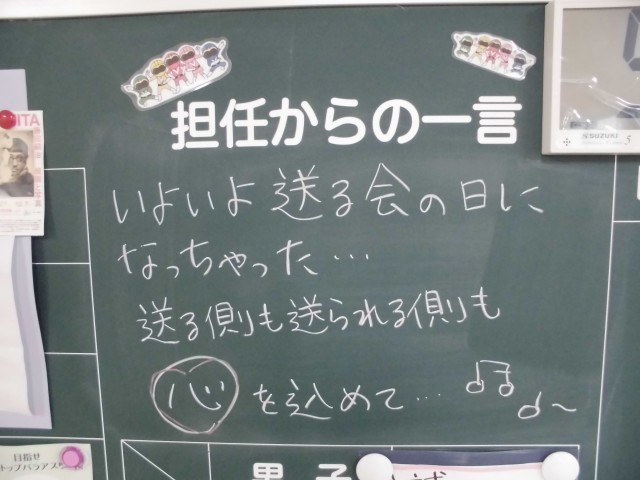 担任からの一言
いよいよ送る会の日に
なっちゃった…
送る側も送られる側も
心を込めて…
SUZUKI
ITA
目指せ
トップパラアス
男子